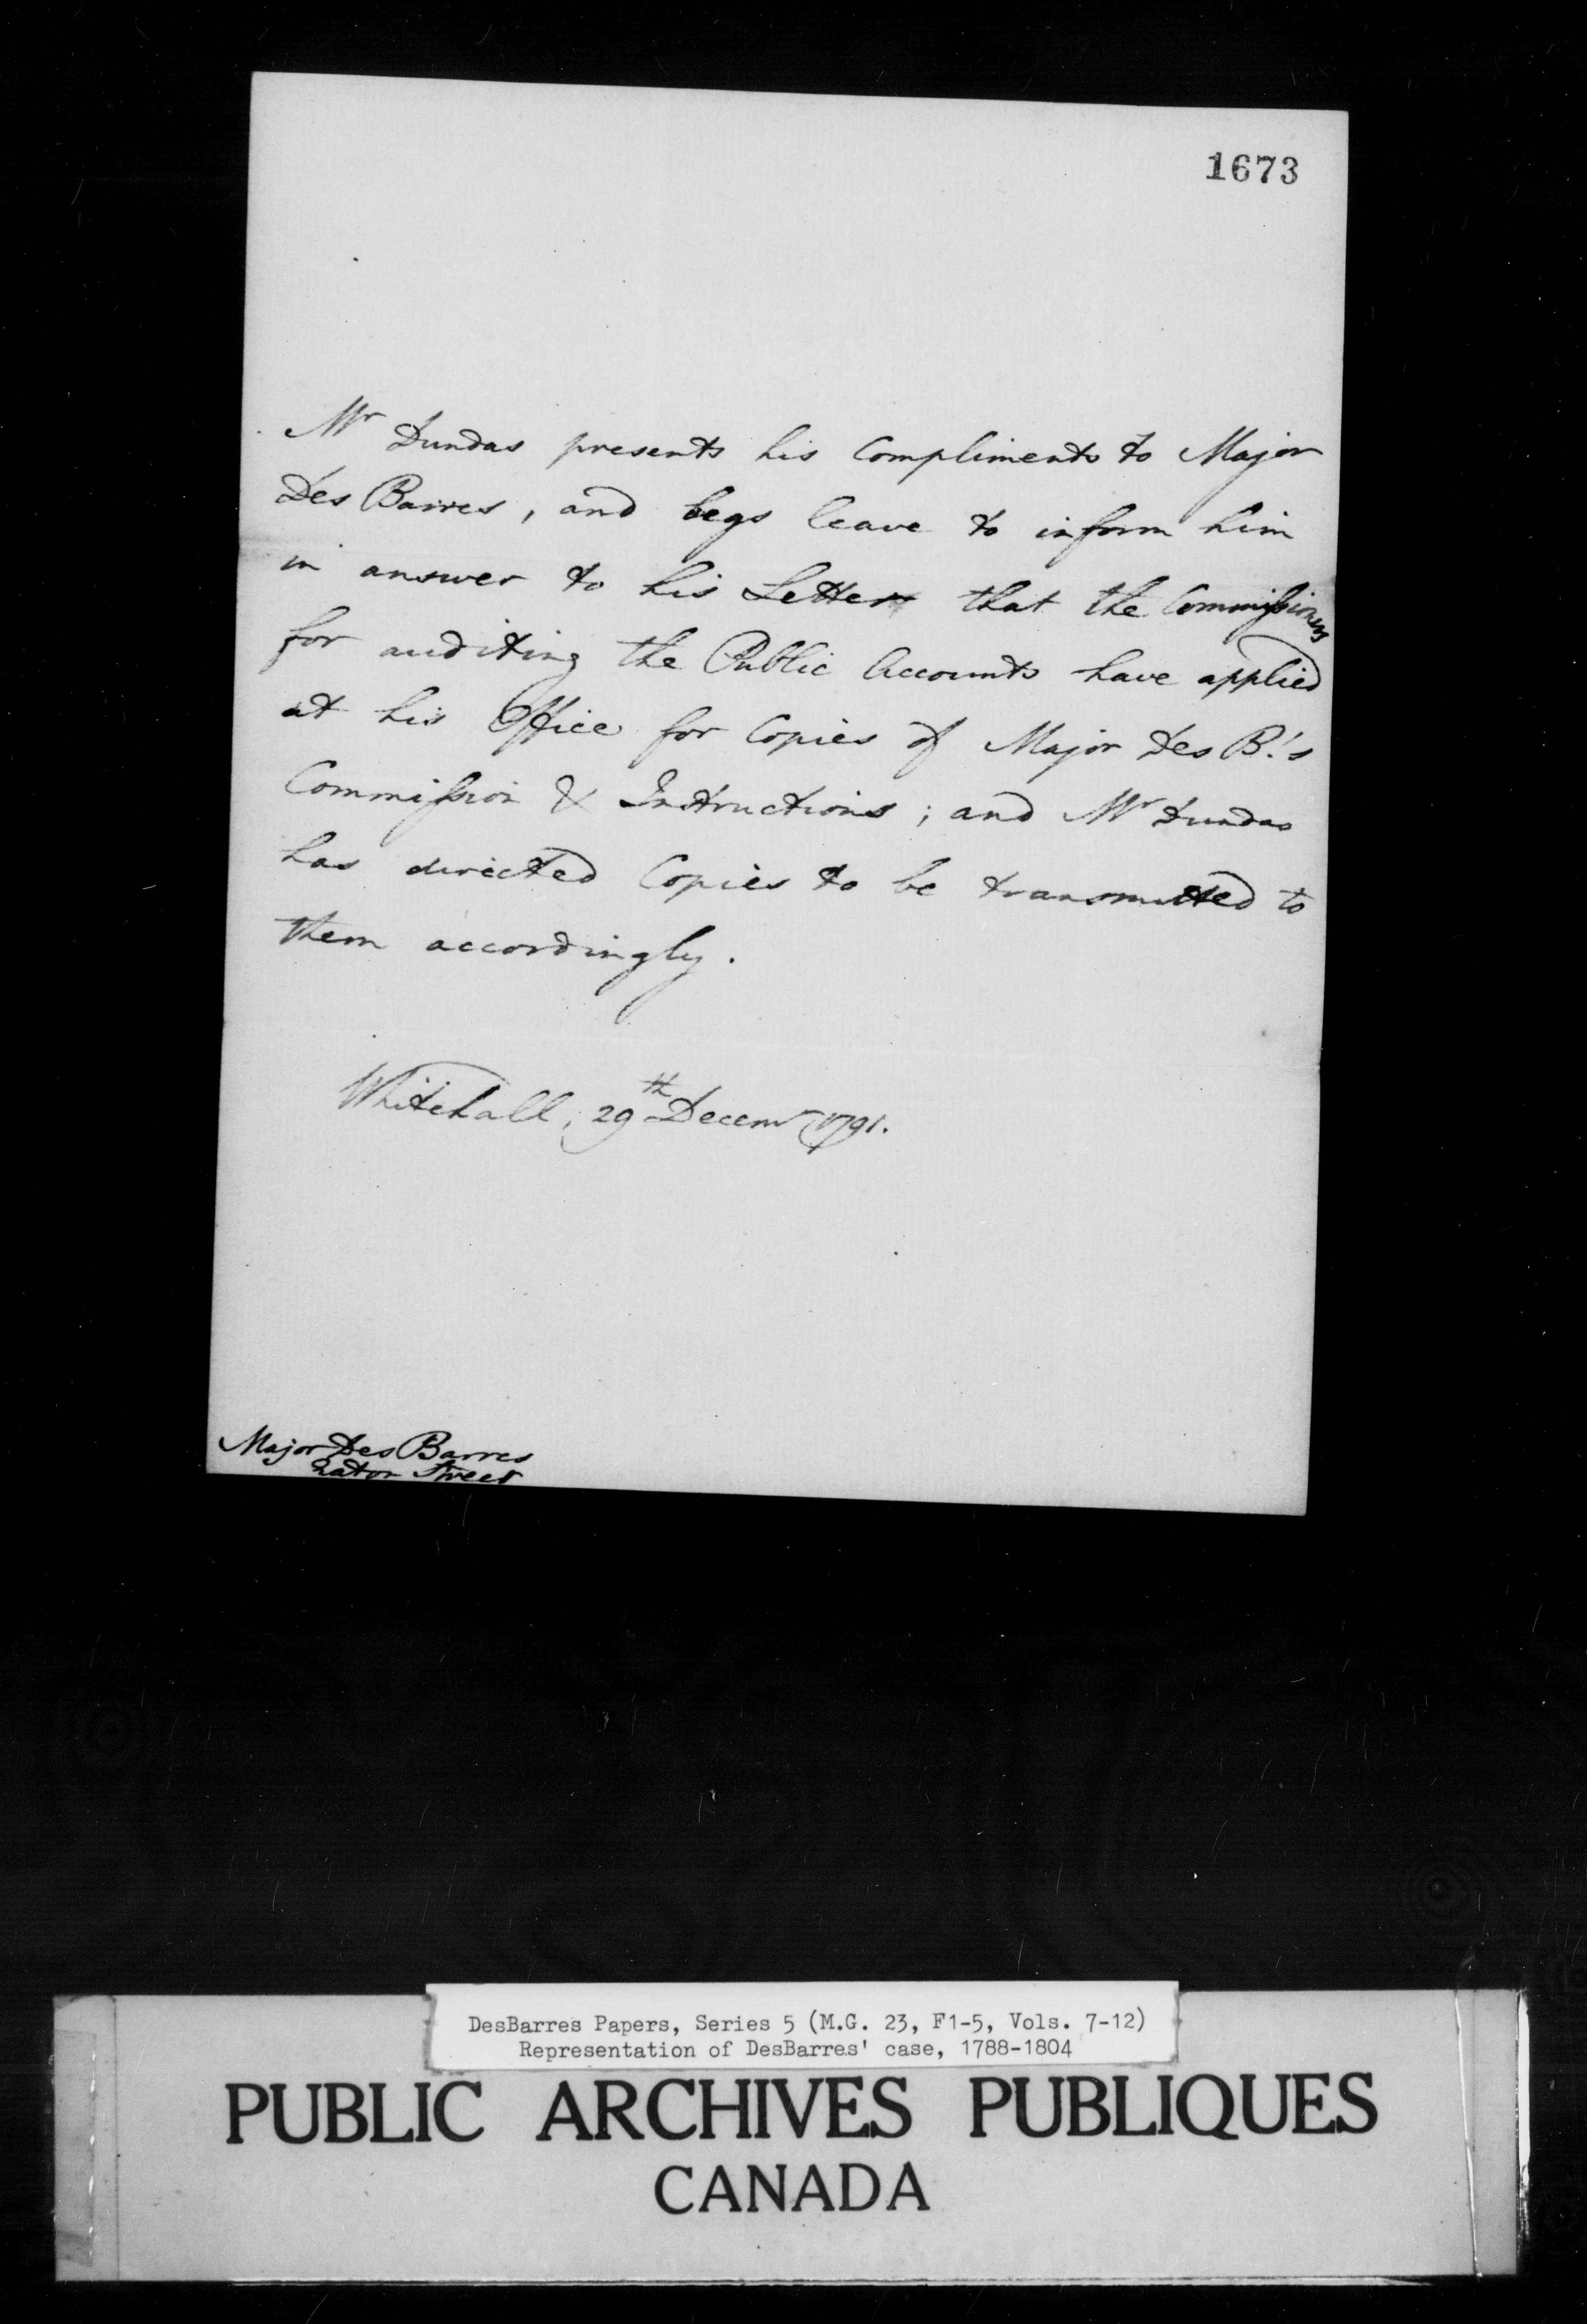 1673
Mr Dundas presents his Compliments to Major
Des Barres, and begs leave to inform him
in answer to his Letter that the Commissioners
for auditing the Public Accounts have applied
at his Office for Copies of Major Des B.'s
Commission & Instructions; and Mr Dundas
has directed Copies to be transmitted to
them accordingly.
Whitehall, 29th Decemr 1791.
Major Des Barres
Eaton Street
DesBarres Papers, Series 5 (M.G. 23, F1-5, Vols. 7-12)
Representation of DesBarres' case, 1788-1804
PUBLIC ARCHIVES PUBLIQUES
CANADA